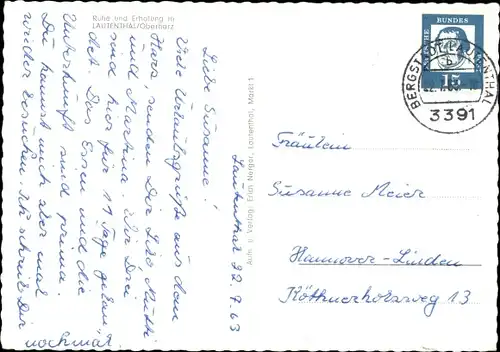 Ruhe und Erholung in
LAUTENTHAL/Oberharz
Lautenthal 22.7.63
Liebe Susanne!
Viele Urlaubsgrüße aus dem
Harz, senden Dir Mutti
und Martina. Wir Drei
sind hier für 11 Tage gelan-
det. Das Essen und die
Unterkunft sind prima.
Du kannst mich aber mal
wieder besuchen. Ich schreib Dir
nochmal.
Aufn. u. Verlag: Erich Nergau, Lautenthal, Markt 1
DEUTSCHE BUNDESPOST
15
BERGSTADT LAUTENTHAL
b
3391
Fräulein
Susanne Meier
Hannover-Linden
Köthnerholzweg 13